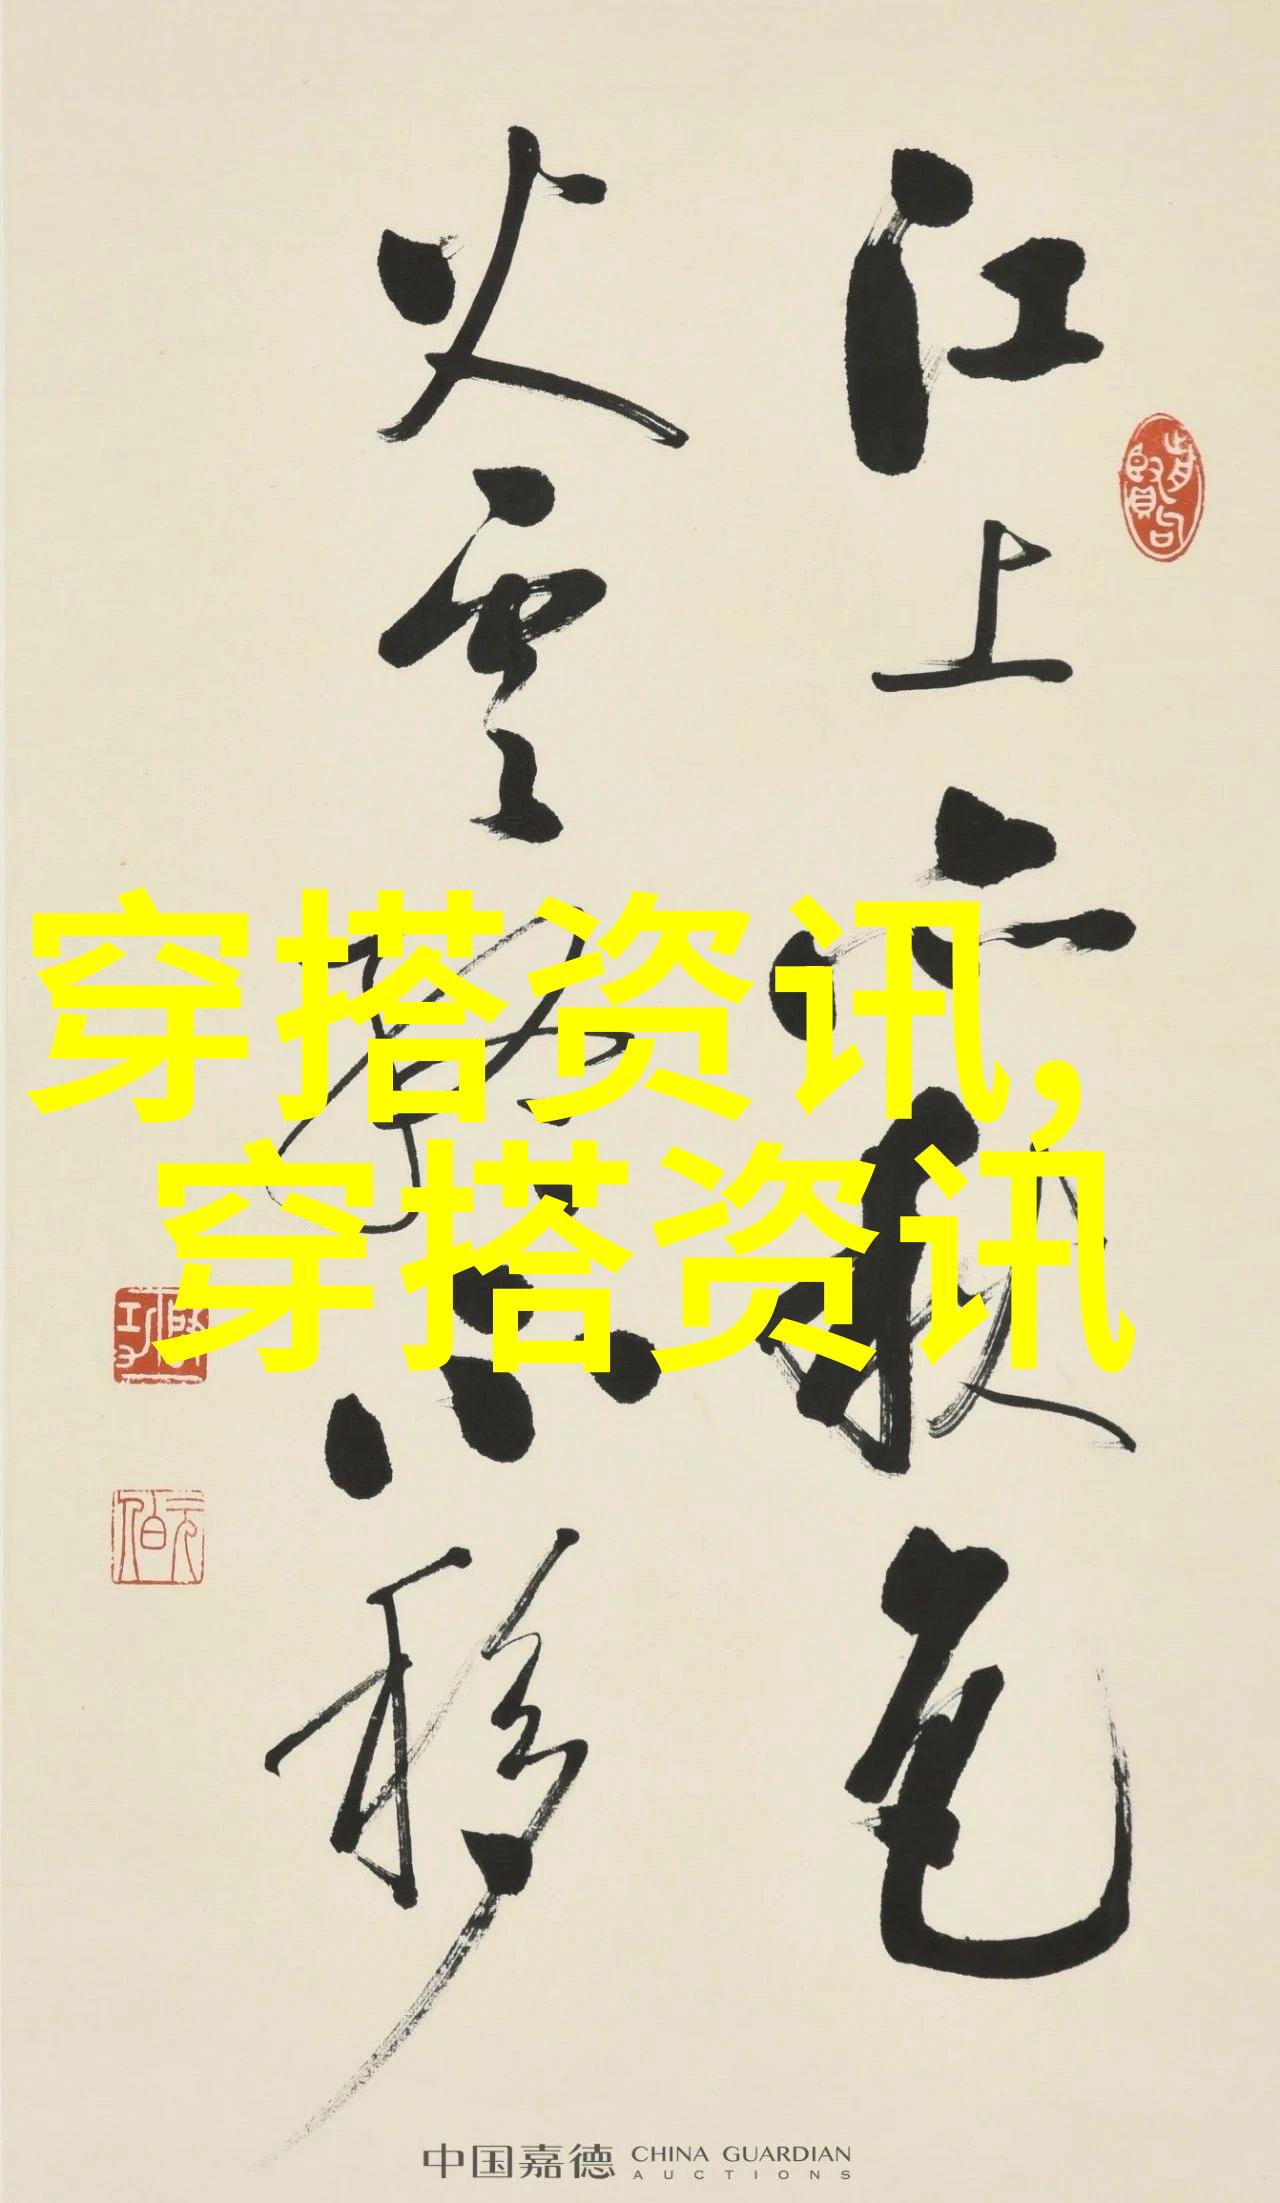 江上亦秋色
火雲終不移
穿搭资讯,
穿搭资讯
中国嘉德 CHINA GUARDIAN
AUCTIONS